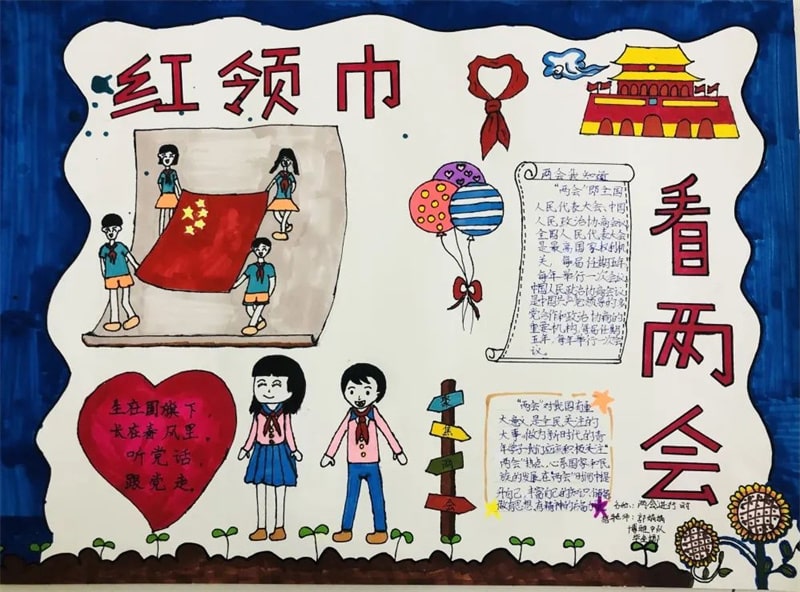 红领巾
看两会
两会我知道
"两会"即全国
人民代表大会、中国
人民政治协商会议
全国人民代表大会
是最高国家权利机
关，每届任期五年，
每年举行一次会议，
中国人民政治协商会议
是中国共产党领导的多
党合作和政治协商的
重要机构，每届任期
五年，每年举行一次会
议。
生在国旗下，
长在春风里，
听党话，
跟党走。
会
"两会"对我国有重
大意义，是全民关注的
大事，做为新时代的青
年学子我们应该积极关注
"两会"特点，心系国家和民
族的发展，在"两会"时间中提
升自己，丰富自己的知识储备
做有思想，有精神的
两会进行时
博雅中队